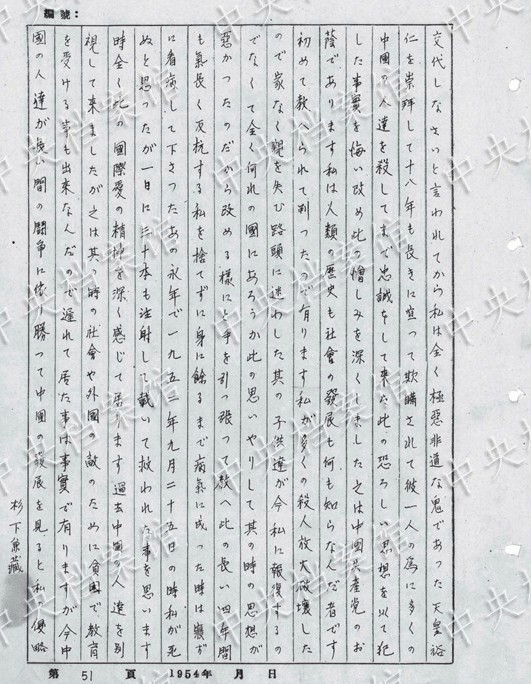 編號：
交代しなさいと言われてから私は全く極悪非道な鬼であった天皇裕
仁を崇拜して十八年も長きに亘って欺瞞されて彼一人の為に多くの
中國の人達を殺してまで忠誠をして来た此の恐ろしい思想を以て犯
した事實を悔い改め此の憎しみを深くしました之は中國共産党のお
蔭であります私は人類の歴史も社會の發展も何も知らなんだ者です
初めて教へられて判ったので有ります私が多くの殺人放火破壊した
ので家なく親を失び路頭に迷わした其の子供達が今私に報復するの
でなくて全く何れの國にあろうか此の思いやりして其の時の思想が
悪かったのだから改める様にと手を引っ張って教へ此の長い四年間
も氣長く反抗する私を捨てずに身に餘るまで病氣に成った時は
に看病して下さったあの永年で一九五二年九月二十五日の時私が死
ぬと思ったが一日に三十本も注射して戴いて救われた事を思います
時全く此の國際愛の精神を深く感じて居ります過去中國の人達を別
視して来ましたが之は其の時の社會や外國の敵のために貧困で教育
を受ける事も出来なんだので遅れて居た事は事實で有りますが今中
國の人達が長い間の闘争に依り勝って中國の發展を見ると私の侵略
杉下兼藏
第 51 頁 1954年 月 日
中央档案馆